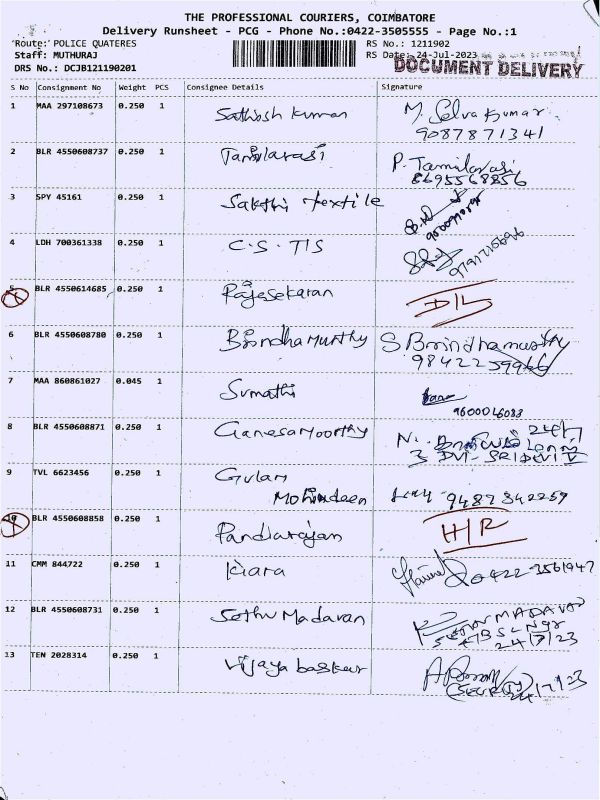 THE PROFESSIONAL COURIERS, COIMBATORE
Delivery Runsheet - PCG - Phone No.:0422-3505555 - Page No.:1
Route: POLICE QUATERES RS No.: 1211902
Staff: MUTHURAJ RS Date: 24-Jul-2023
DRS No.: DCJB121190201 DOCUMENT DELIVERY
S No Consignment No Weight PCS Consignee Details Signature
1 MAA 297108673 0.250 1 Sathish kumar M. Selva kumar
9087871341
2 BLR 4550608737 0.250 1 Tamilarasi P. Tamilarasi
8695568856
3 SPY 45161 0.250 1 Sakthi textile
4 LDH 700361338 0.250 1 C.S. TIS
5 BLR 4550614685 0.250 1 Rajesekaran D/L
6 BLR 4550608780 0.250 1 Brindha Murthy S Brindhamurthy
9842259966
7 MAA 860861027 0.045 1 Sumathi
9600016083
8 BLR 4550608871 0.250 1 Ganesa Moorthy 24/7
9 TVL 6623456 0.250 1 Gulam
Mohindeen 9487842259
10 BLR 4550608858 0.250 1 Pandiarajan H/R
11 CMM 844722 0.250 1 Kiara 0422-3561947
12 BLR 4550608731 0.250 1 Sethu Madavan MADAVAN
24/7/23
13 TEN 2028314 0.250 1 Vijaya baskar
24/7/23